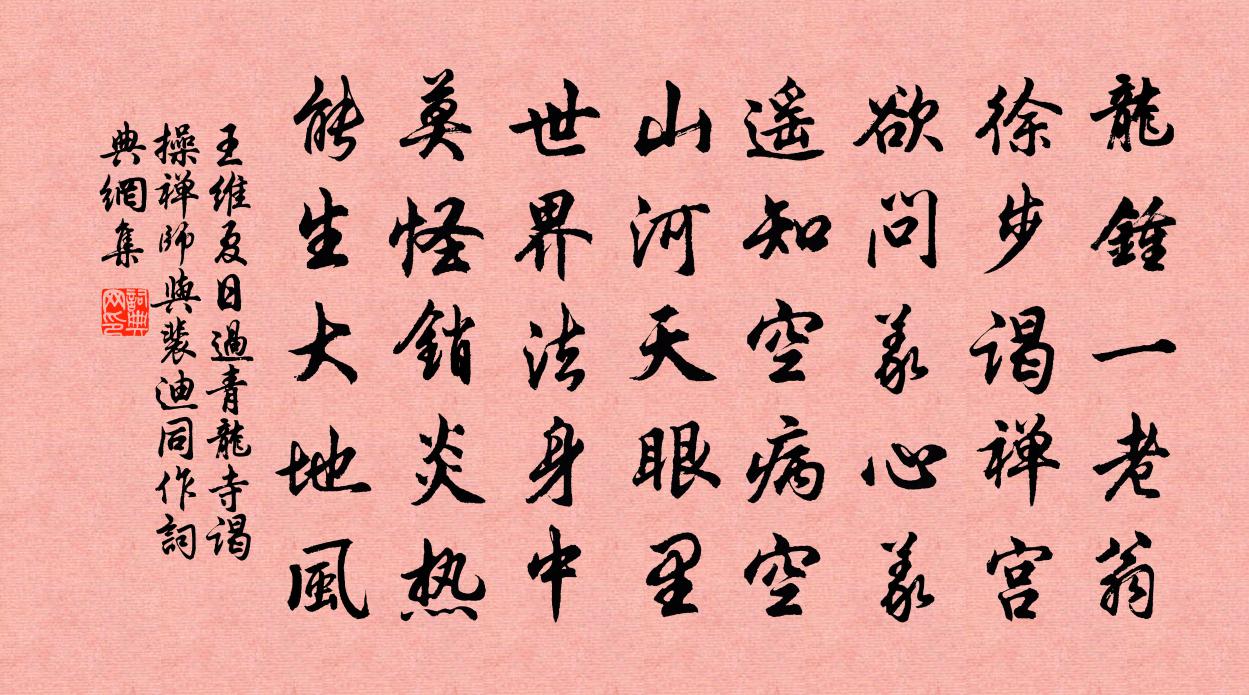 龍鍾一老翁
徐步谒禅宫
欲问義心義
遥知空病空
山河天眼里
世界法身中
莫怪銷炎热
能生大地風
王维夏日過青龍寺谒
操禅師與裴迪同作詞
典網集
詞典网印